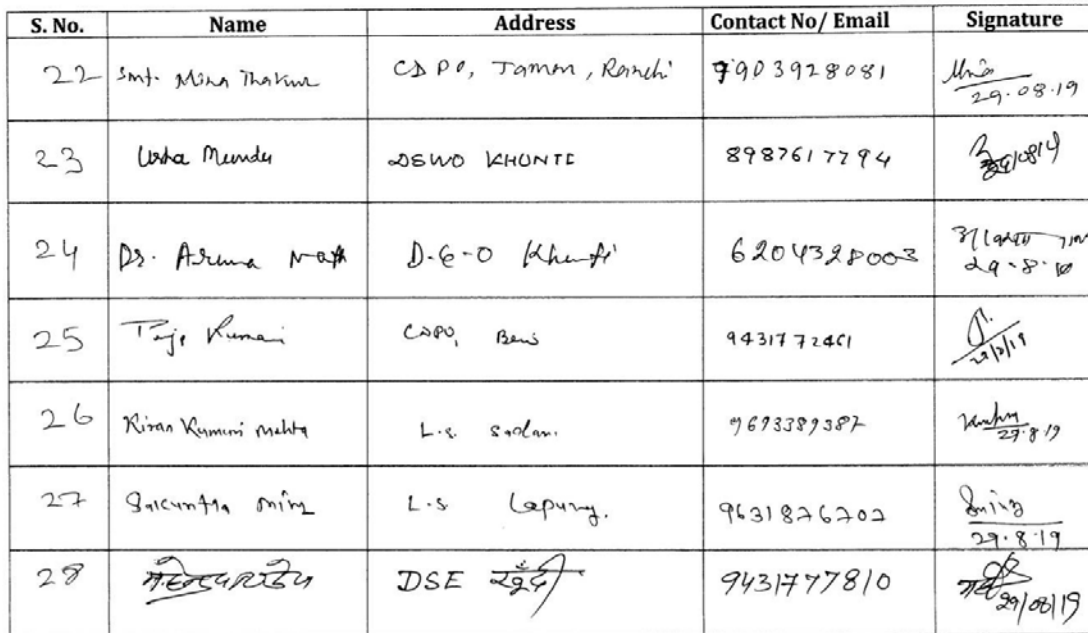 S. No. Name Address Contact No/ Email Signature
22 Smt. Mina Thakur CDPO, Tamar, Ranchi 7903928081 29.08.19
23 Usha Munda DSWO KHUNTI 8987617794
24 Dr. Aruna D-E-O Khunti 6204328003 29-8-
25 Kumari CDPO, 9431772461
26 Kiran Kumari Mehta L.S. 9693389387 29.8.19
27 L.S Lapung. 9631826702 29.8.19
28 DSE खूंटी 9431777810 29/08/19